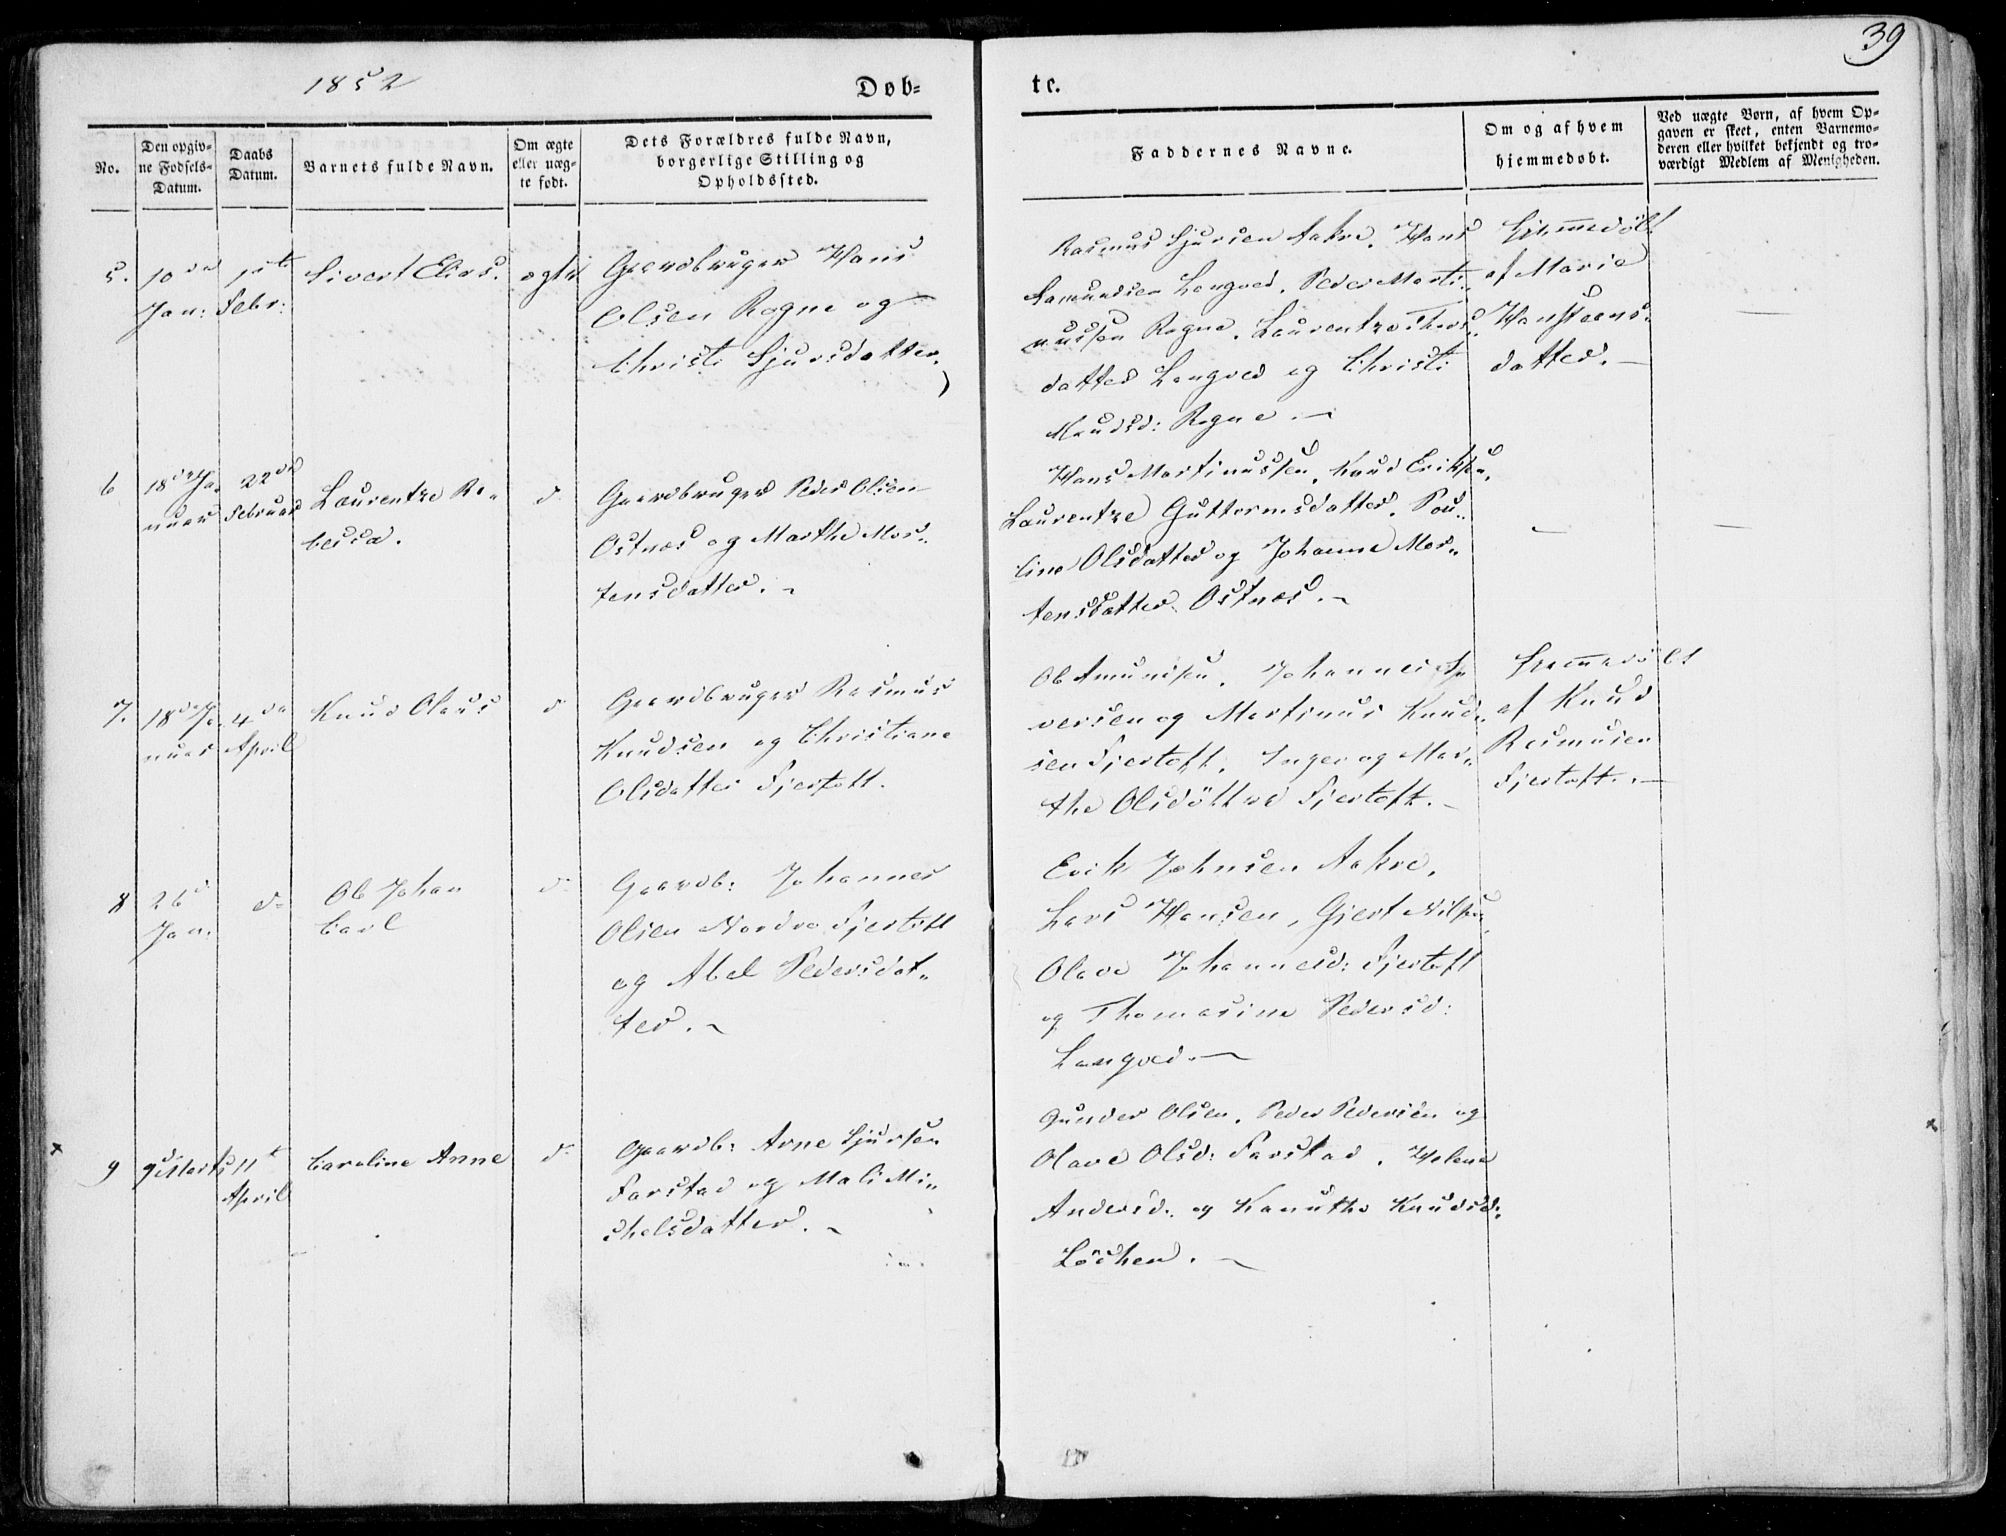 39
1852
Døb-
te.
No.
Den opgiv-
ne Fødsels-
Datum.
Daabs
Datum.
Barnets fulde Navn.
Om ægte
eller uæg-
te født.
Dets Forældres fulde Navn,
borgerlige Stilling og
Opholdssted.
Faddernes Navne.
Om og af hvem
hjemmedøbt.
Ved uægte Børn, af hvem Op-
gaven er skeet, enten Barnemo-
deren eller hvilket bekjendt og tro-
værdigt Medlem af Menigheden.
5.
10de
Jan:
1ste
Febr:
Sivert Elias.
ægte
Gaardbruger Hans
Olsen Rogne og
Christi Sjursdatter.
Rasmus Sjursen Aakre. Hans
Amundsen Longved. Peder Marti-
nussen Rogne. Laurentze
datter Longved og Christi
Knudsd: Rogne.
Hjemmedöbt
af Marie
Hansteens-
datter.
6
18de Ja-
nuar
22de
Februar
Laurentze Re-
becca.
d
Gaardbruger Peder Olsen
Ostnæs og Marthe Mor-
tensdatter.
Hans Martinussen, Knud Eriksen,
Laurentze Guttormsdatter. Pou-
line Olsdatter og Johanne Mor-
tensdatter Ostnæs.
7.
18de Ja-
nuar
4de
April
Knud Olaus
d
Gaardbruger Rasmus
Knudsen og Christiane
Olsdatter Fjertoft.
Ole Amundsen. Johannes
versen og Martinus Knud-
sen Fjertoft. Inger og Mar-
the Olsdöttre Fjertoft.
Hjemmedöbt
af Knud
Rasmusen
Fjertoft.
8
26d
Jan:
d
Ole Johan
Carl
d
Gaardb: Johannes
Olsen Nordre Fjertoft
og Abel Pedersdat-
ter.
Erik Johnsen Aakre.
Lars Hansen, Gjert Nilsen
Olave Johannesd: Fjertoft
og Thomasine Pedersd:
Longved.
9
9de Marts
11te
April
Caroline Anne
d
Gaardb: Arne Sjursen
Farstad og Mali Mi-
chelsdatter.
Gunder Olsen. Peder Pedersen og
Olave Olsd: Farstad. Helene
Andersd: og Kanutha Knudsd:
Löchen.